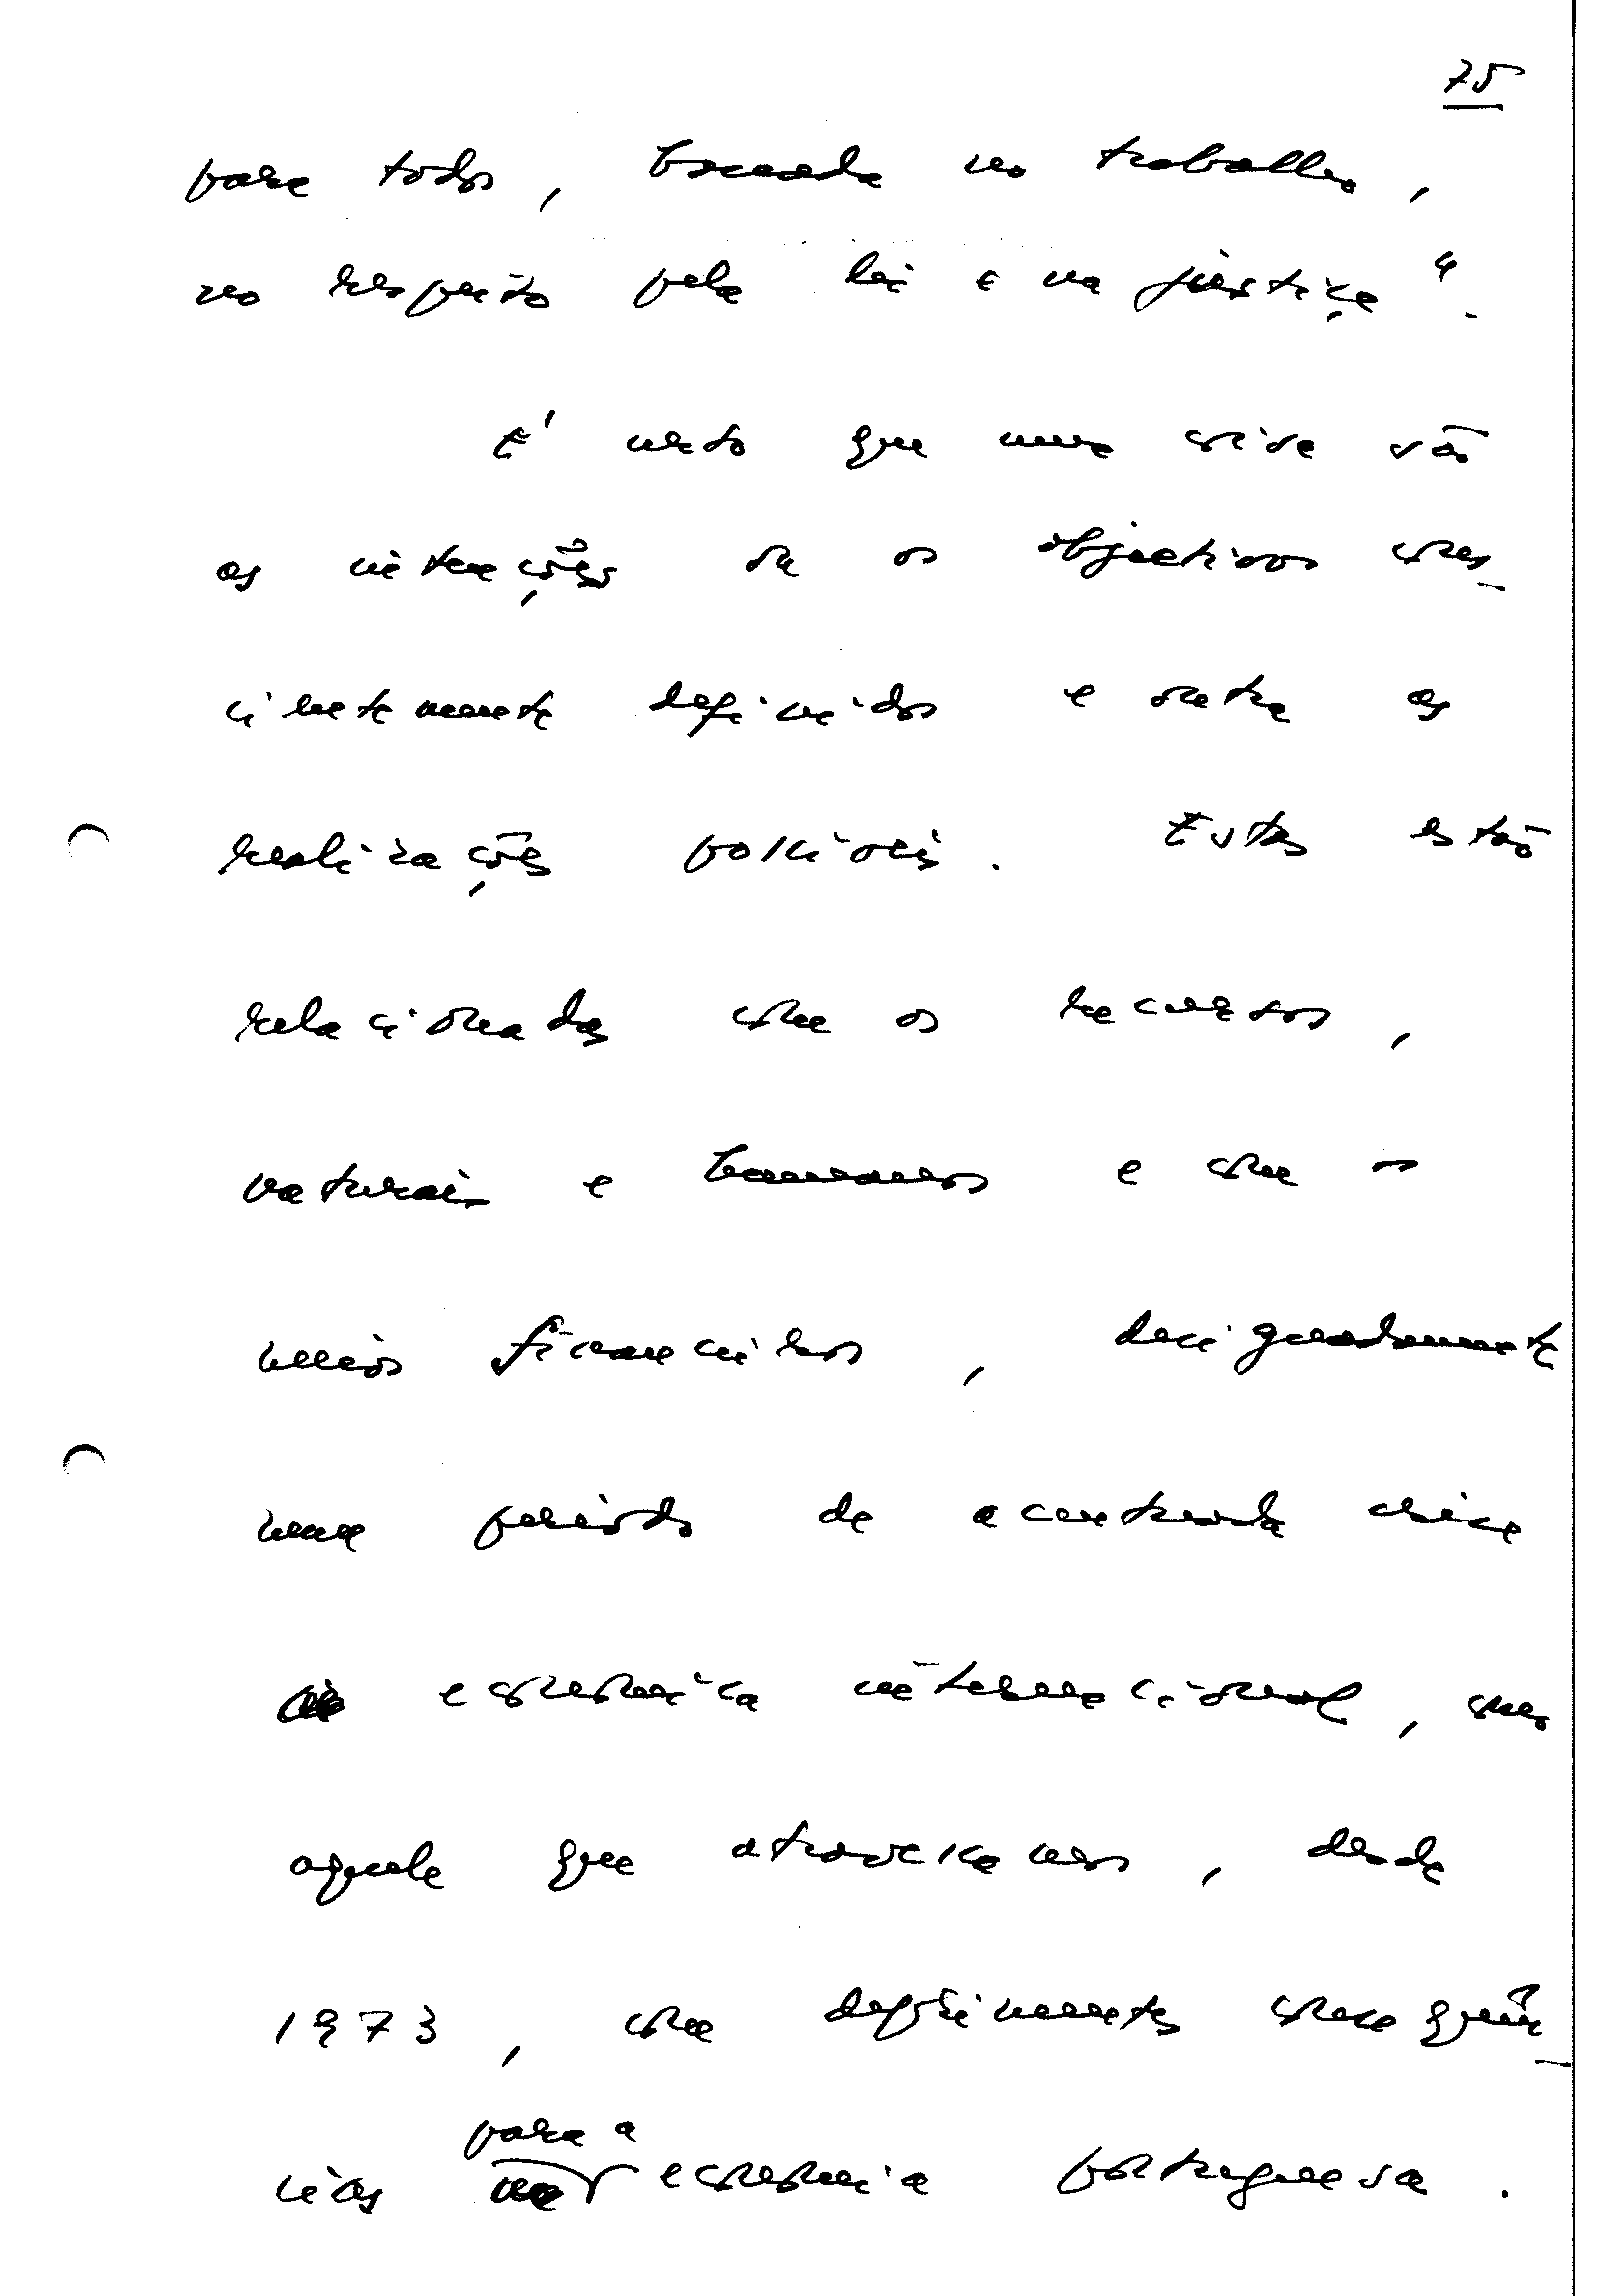 75
para todos, baseada no trabalho,
no respeito pela lei e na justiça".
É certo que uma coisa são
as intenções ou os objectivos cons-
cientemente definidos e outra as
realizações possíveis. Estas estão
relacionadas com os recursos,
naturais e humanos e com os
meios financeiros, designadamente
num período de acentuada crise
económica internacional, como
aquele que atravessamos, desde
1973, com deprimentes consequên-
cias para a economia portuguesa.